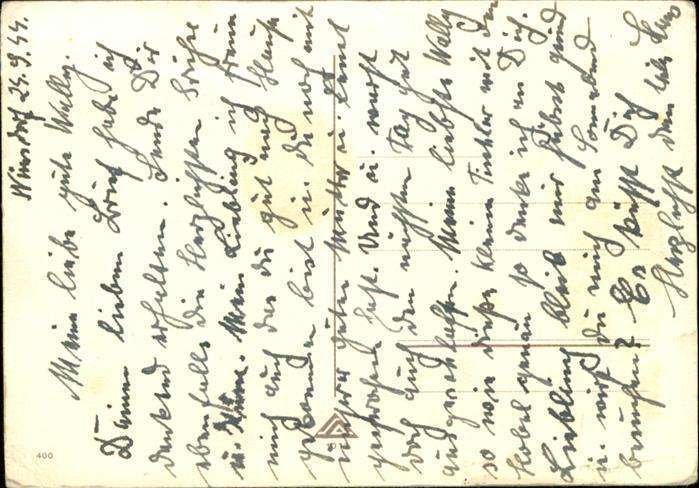 Wünsdorf 25.9.44.
Meine liebe gute Wally.
Deinen lieben Brief habe ich
dankend erhalten. Sende Dir
ebenfalls die herzlichsten Grüße
u. Küsse. Mein Liebling ich freue
mich auch das du gut nach Hause
gekommen bist u. du noch mit
deiner guten Mutter u.
gesprochen hast. Und u.
doch auch den nächsten Tag gut
ausgeschlafen. Meine liebste Wally
so wie diese kleine Tischler mit den
Hobel genau so denke ich an Dich.
Liebling bleib mir gesund
u. wirst du mich am Sonnabend
besuchen? Es küßt Dich
Herzlichst dein
400